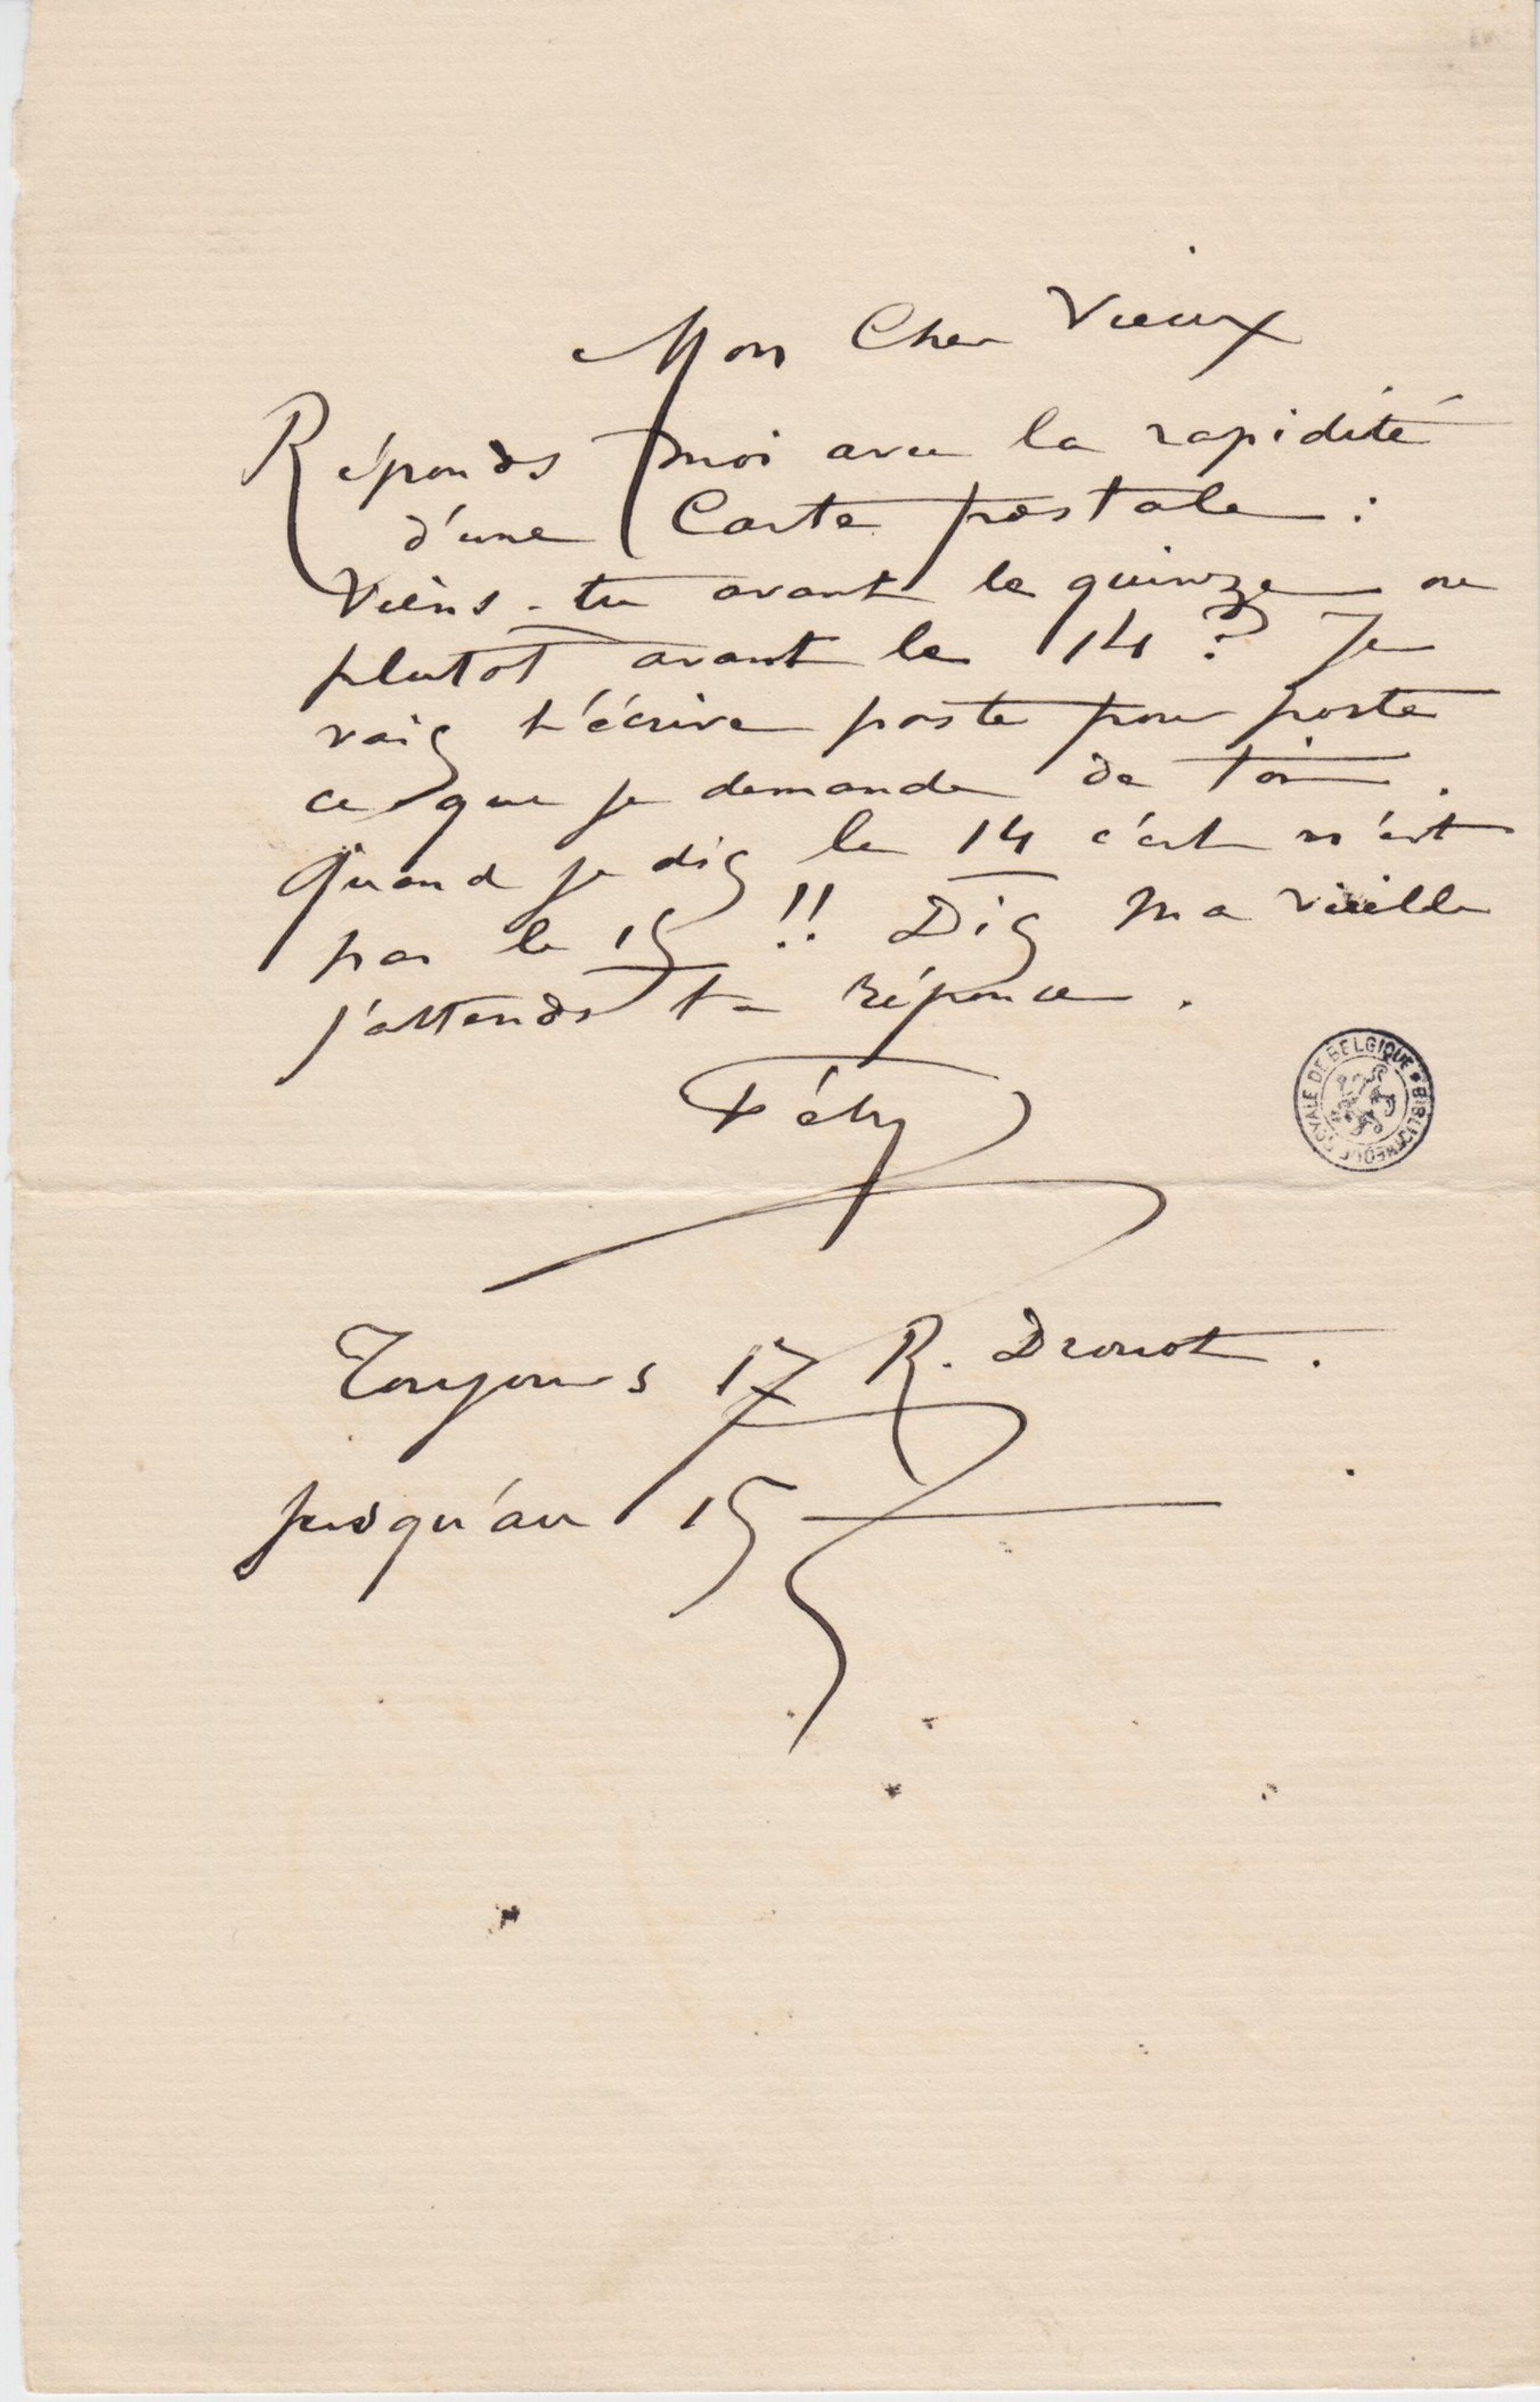 Mon Cher Vieux
Réponds moi avec la rapidité
d'une Carte postale :
Viens-tu avant le quinze ou
plutot avant le 14 ? Je
vais t'écrire poste pour poste
ce que je demande de toi.
Quand je dis le 14 c'est n'est
pas le 15 !! Dis ma vieille
j'attends ta réponce.
Fély
BIBLIOTHEQUE ROYALE DE BELGIQUE
Toujours 17 R. Drouot.
jusqu'au 15